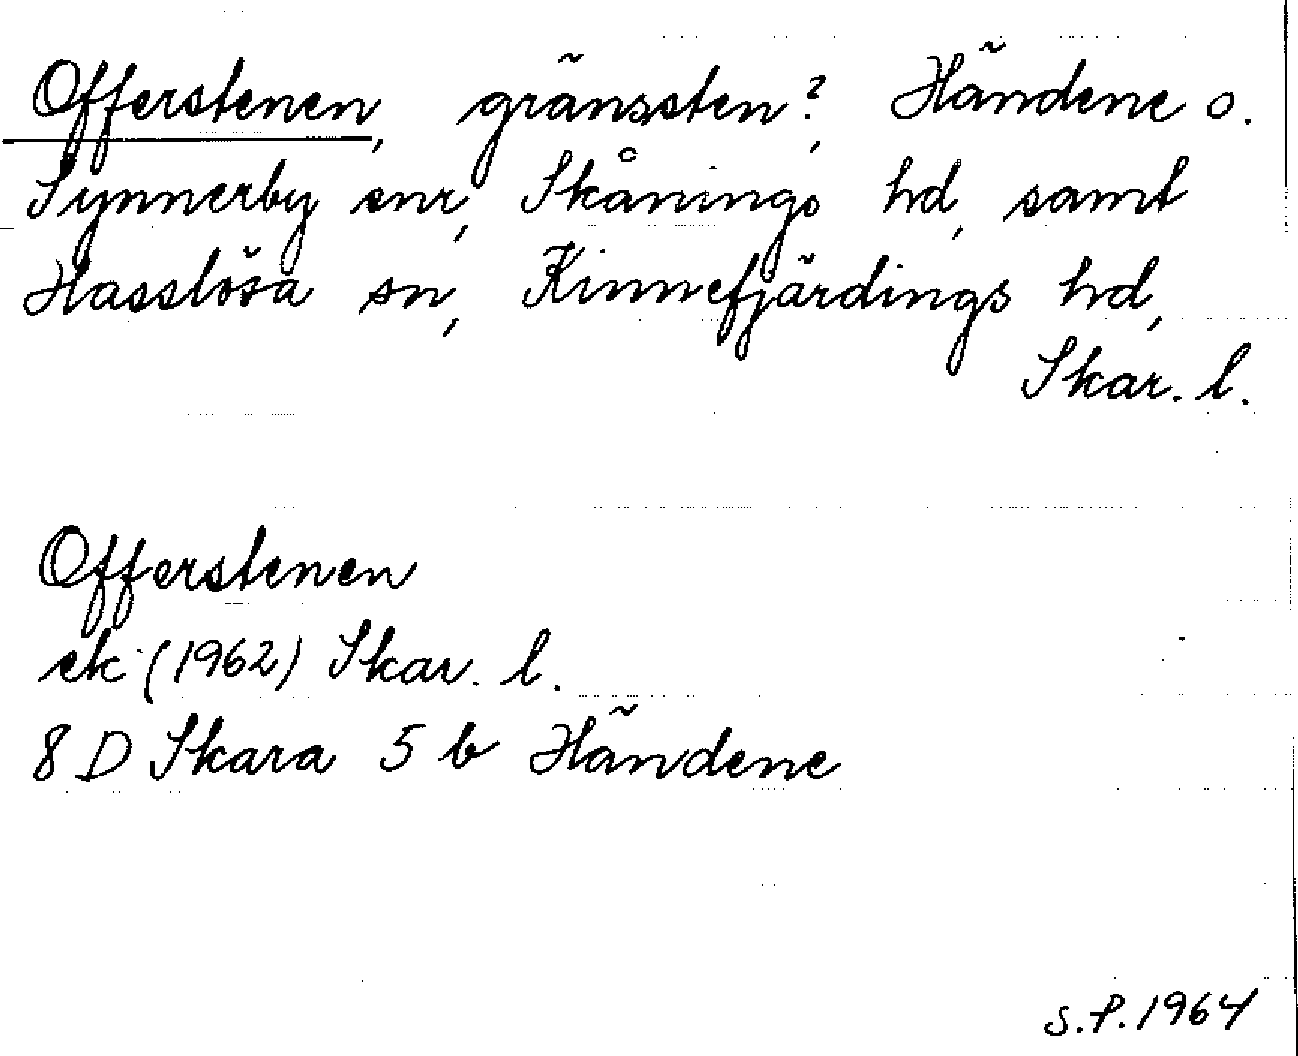 Offerstenen, gränssten?, Händene o.
Synnerby snr, Skånings hd, samt
Hasslösa sn, Kinnefjärdings hd,
Skar. l.
Offerstenen
ek (1962) Skar. l.
8 D Skara 5 b Händene
S.P. 1964